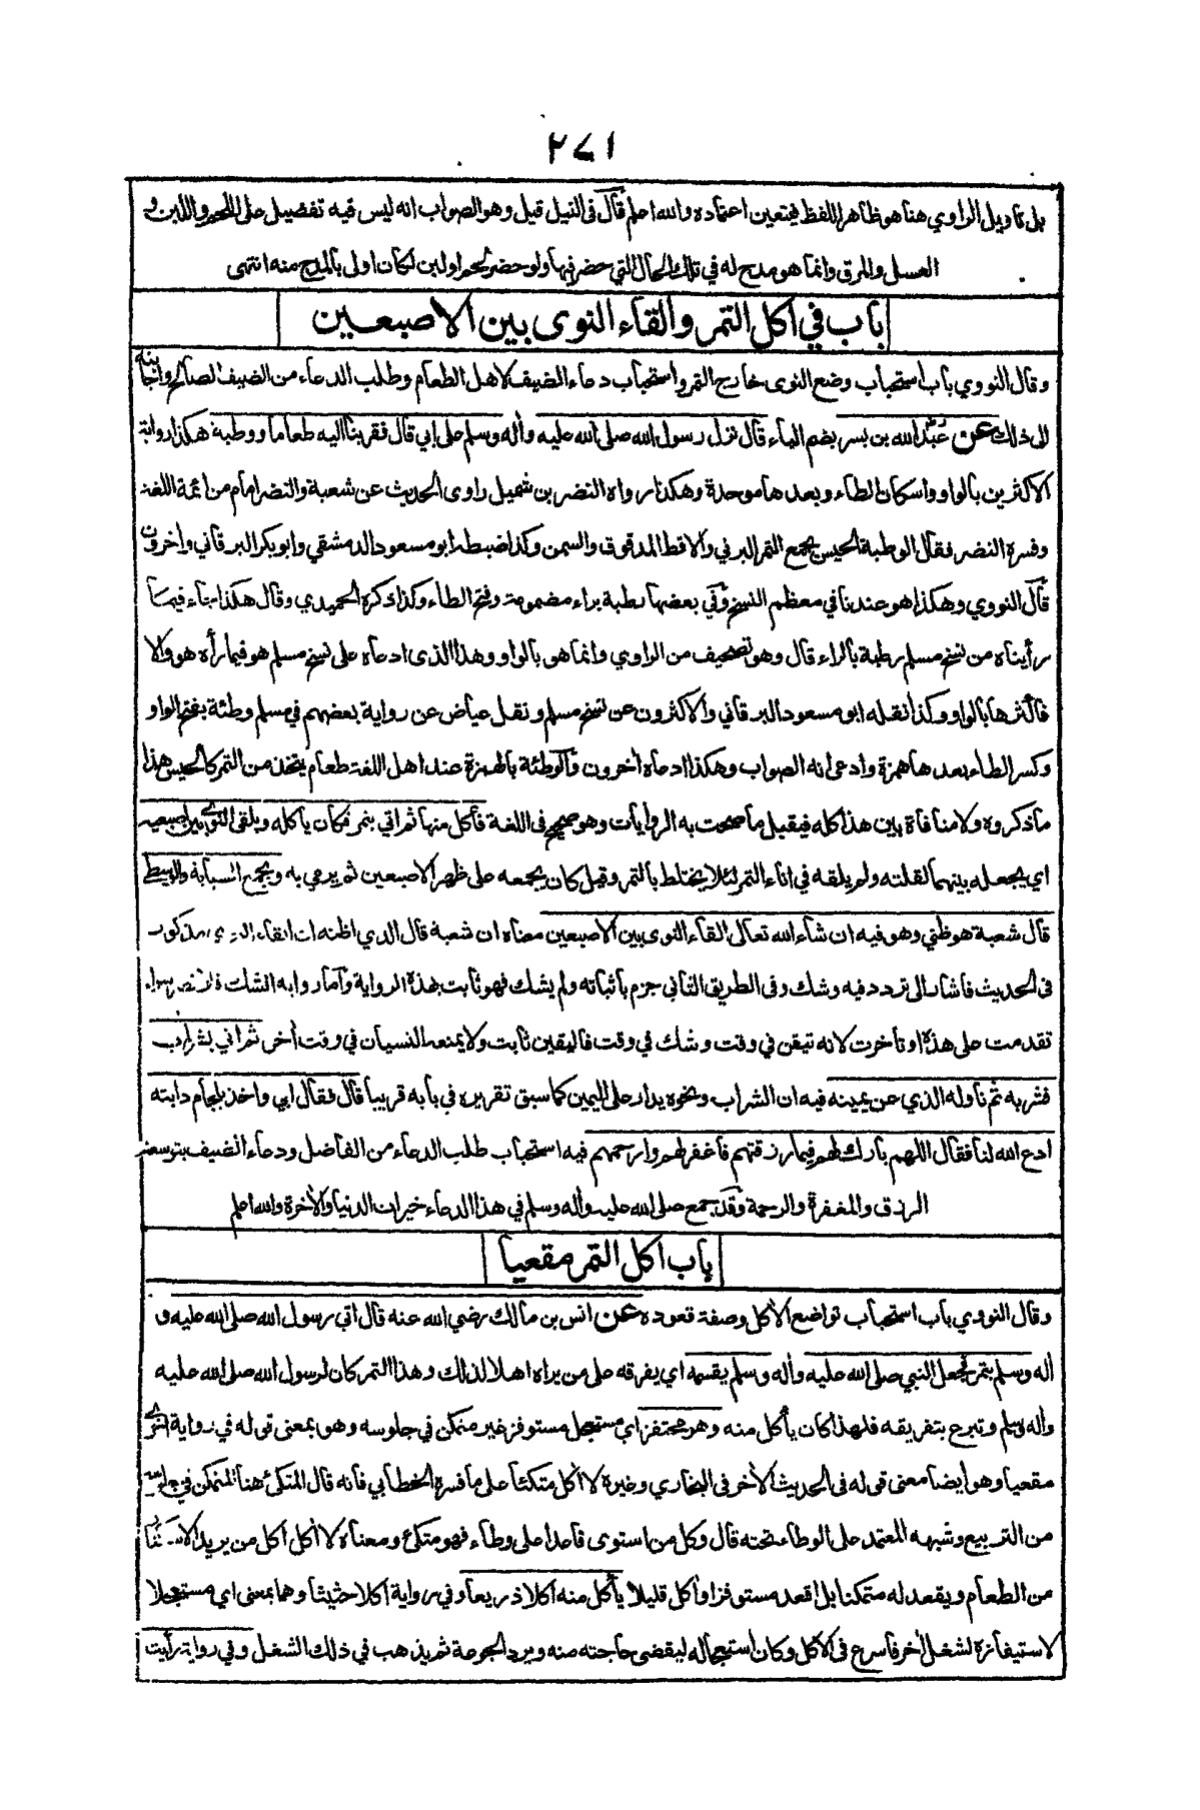 ٢٧١
بل تاويل الراوي هنا هو ظاهر اللفظ فيتعين اعتماده والله اعلم قال فى النيل قيل وهو الصواب انه ليس فيه تفضيل على اللحم واللبن و
العسل والمرق وانما هو مدح له في تلك الحال التي حضر فيها ولو حضر لحم او لبن لكان اولى بالمدح منه انتهى
باب في اكل التمر والقاء النوى بين الاصبعين
وقال النووي باب استحباب وضع النوى خارج التمر واستحباب دعاء الضيف لاهل الطعام وطلب الدعاء من الضيف الصالح واجابته
الى ذلك عن عبد الله بن بسر بضم الباء قال نزل رسول الله صلى الله عليه وأله وسلم على ابي قال فقربنا اليه طعاما ووطبة هكذا رواية
الاكثرين بالواو واسكان الطاء وبعدها موحدة وهكذا رواه النضر بن شميل راوى الحديث عن شعبة والنضر امام من ائمة اللغة
وفسره النضر فقال الوطبة الحيس بجمع التمر البرني والاقط المدقوق والسمن وكذا ضبطه ابو مسعود الدمشقي وابو بكر البرقاني وأخرون
قال النووي وهكذا هو عندنا في معظم النسخ وفي بعضها رطبة براء مضمومة وفتح الطاء وكذا ذكره الحميدي وقال هكذا جاء فيما
رأيناه من نسخ مسلم رطبة بالراء قال وهو تصحيف من الراوي وانما هو بالواو وهذا الذى ادعاه على نسخ مسلم هو فيما رأه هو والا
فاكثرها بالواو وكذا نقله ابو مسعود البرقاني والاكثرون عن نسخ مسلم ونقل عياض عن رواية بعضهم في مسلم وطئة بفتح الواو
وكسر الطاء بعدها همزة وادعى انه الصواب وهكذا ادعاه أخرون والوطئة بالهمزة عند اهل اللغة طعام يتخذ من التمر كالحيس هذا
ما ذكروه ولا منافاة بين هذا كله فيقبل ما صحت به الروايات وهو صحيح فى اللغة فأكل منها ثم اتي بتمر فكان يأكله ويلقى النوى بين اصبعيه
اي يجعله بينهما لقلته ولم يلقه في اناء التمر لئلا يختلط بالتمر وقيل كان يجمعه على ظهر الاصبعين ثم يرمي به ويجمع السبابة والوسطى
قال شعبة هو ظني وهو فيه ان شاء الله تعالى القاء النوى بين الاصبعين معناه ان شعبة قال الذي اظنه ان القاء النوى مذكور
فى الحديث فاشار الى تردد فيه وشك وفى الطريق الثانى جزم باثباته ولم يشك فهو ثابت بهذه الرواية وأما رواية الشك فلا تضر سواء
تقدمت على هذه او تأخرت لانه تيقن في وقت وشك في وقت فاليقين ثابت ولا يمنعه النسيان في وقت أخر ثم اتي بشراب
فشربه ثم ناوله الذي عن يمينه فيه ان الشراب ونحوه يدار على اليمين كما سبق تقريره في بابه قريبا قال فقال ابي واخذ بلجام دابته
ادع الله لنا فقال اللهم بارك لهم فيما رزقتهم فاغفر لهم وارحمهم فيه استحباب طلب الدعاء من الفاضل ودعاء الضيف بتوسعة
الرزق والمغفرة والرحمة وقد جمع صلى الله عليه وأله وسلم في هذا الدعاء خيرات الدنيا والأخرة والله اعلم
باب اكل التمر مقعيا
وقال النووي باب استحباب تواضع الأكل وصفة قعوده عن انس بن مالك رضي الله عنه قال اتى رسول الله صلى الله عليه و
أله وسلم بتمر فجعل النبي صلى الله عليه وأله وسلم يقسمه اي يفرقه على من يراه اهلا لذلك وهذا التمر كان لرسول الله صلى الله عليه
وأله وسلم وتبرع بتفريقه فلهذا كان يأكل منه وهو محتفز اي مستعجل مستوفز غير متمكن في جلوسه وهو بمعنى قوله في رواية اخرى
مقعيا وهو ايضا معنى قوله في الحديث الأخر فى البخاري وغيره لا أكل متكئا على ما فسره الخطابي فانه قال المتكئ هنا المتمكن في جلوسه
من التربيع وشبهه المعتمد على الوطاء تحته قال وكل من استوى قاعدا على وطاء فهو متكئ ومعناه لا أكل اكل من يريد الاستكثار
من الطعام ويقعد له متمكنا بل اقعد مستوفزا وأكل قليلا يأكل منه اكلا ذريعا وفي رواية اكلا حثيثا وهما بمعنى اي مستعجلا
لاستيفازه لشغل أخر فاسرع فى الاكل وكان استعجاله ليقضى حاجته منه ويرد الجوعة ثم يذهب في ذلك الشغل وفي رواية رأيت